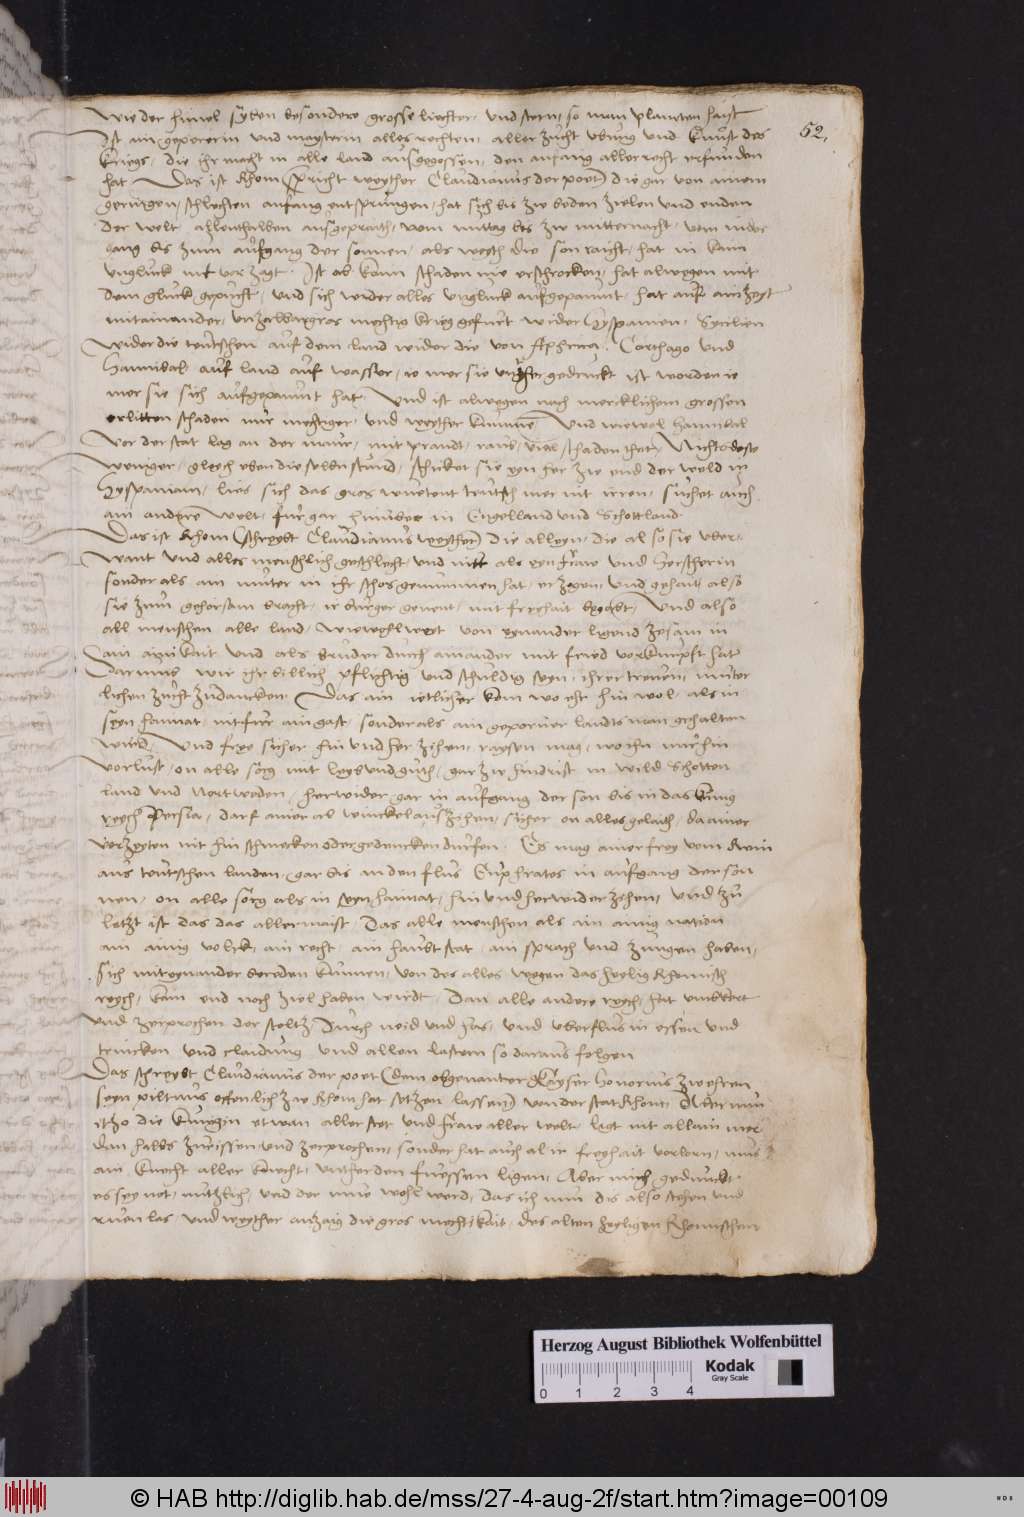 wie der himel syben besondere grosse liechter, und stern, so man planeten haist
52.
Ist ain gepererin und maysterin aller rechten, aller zucht ubung und kunst des
kriegs, die ihr macht in alle land ausgegossen, den anfang aller recht erfunden
hat Das ist Rhom (spricht weyther Claudianus der poet) die gar von ainem
geringen, schlechten anfang entsprungen, hat sich bis zw beden zielen und enden
der welt allenthalben ausgepraith, vom mittag bis zw mitternacht, vom nider
gang bis zum aufgang der sonnen, als weyth die son raicht, hat in kain
unglück nit verzagt. Ist ob kaim schaden nie erschrocken, hat alwegen mit
dem glück gepucht, und sich wider alles unglück aufgepaumt, hat auf ain zeyt
mitainander, unzelbar gros mechtig krieg gefurt wider Hyspanien, Sycilien
wider die teutschen auf dem land wider die von Aphrica, Carthago und
Hannibal auf land auf wasser, ie mer sie unther gedruckt ist worden ie
mer sie sich aufgepaumt hat, Und ist alwegen nach mercklichem grossen
erlitten schaden nur mechtiger, und weyther kummen Und wiewol Hannibal
vor der stat lag an der maur, mit prandt, raub, vial schaden thet, Nichts deste
weniger, gleych eben die selbn stund, schicket sie eyn her zw end der weld in
Hyspaniam, lies sich das gros wuetent teutsch mer nit irren, suchet auch
ain andere welt, fur gar hinüber in Engelland und Schottland.
Das ist Rhom (schreybt Claudianus weyther) die alleyn, die al so sie uber,
want und alles menschlich geschlecht, und nitt als eyn fraw und herscherin
sonder als ain muter in ihr schos genummen hat, erzogen, und gehait, also
sie zum gehorsam bracht, ir burger genent, mit freyhait begabt, Und also
all menschen alle land, wieweyt von eynander ligend zesam in
ain ainikait und als bruder durch ainander mit fried verknupft hat
Darumb wir ihr billich pflichtig und schuldig seyn, ihrer treuen, muter
lichen zucht zudancken. Das ain ietlicher kom wo er hin wol, als in
seyn haimat, nit fur ain gast, sonder als ain geporner landtsman gehalten
wird, Und frey sicher hin und her zihen, raysen mag, wo ihn nur hin
verlust, on alle sorg mit leyb und guth, gar zw hindrist in wild Schotten
land und Nortweden, herwider gar in aufgang der son bis in das kunig
reych Persia, darf aimer al winckel aus zihen, sicher on alles gelaith, da ainer
vorzeyten nit hin schmecken oder gedencken durfen. Es mag aimer frey vom Rein
aus teutschen landen, gar bis in den flus Euphrates in aufgang der son
nen, on alle sorg als in seyn haimat, hin und herwider zehen, und zu
letzt ist das das allermaist, Das alle menschen als ain ainig nation
ain ainig volck, ain recht, ain haubt stat, ain sprach und zungen haben,
sich mit eynander bereden kunnen, von des alles wegen das heylig Rhomisch
reych, kain end noch ziel haben wirdt, Dan alle andere reych, hat umbkert
und zerprochen der stoltz durch neid und has, und uberflus in essen und
trincken und claidung und allen lastern so daraus folgen
Das schreybt Claudianus der poet (dem obgenanter Kayser Honorius zw ehren
seyn piltnus offenlich zw Rhom hat setzen lassen) von der stat Rhom, Aber nun
itzo die kunigin etwan aller stet und fraw aller welt, ligt nit allain mer
dan halbs zurissen und zerprochen, sonder hat auch al ir freyhait verlorn, mus
ain knecht aller knecht, unther den fuessen ligen, Aber mich geduncht
es sey not, nutzlich, und der mue wohl werd, das ich nun dis also stehen und
ruen las, und weyther anzaig die gros mechtikait, des alten heyligen Rhomischen
Herzog August Bibliothek Wolfenbüttel
0 1 2 3 4
Kodak
Gray Scale
© HAB http://diglib.hab.de/mss/27-4-aug-2f/start.htm?image=00109